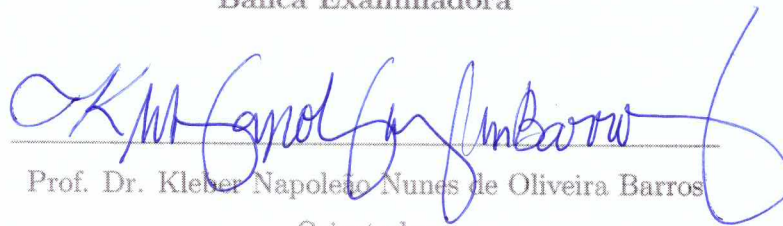 Banca Examinadora
Prof. Dr. Kleber Napoleão Nunes de Oliveira Barros
Orientador